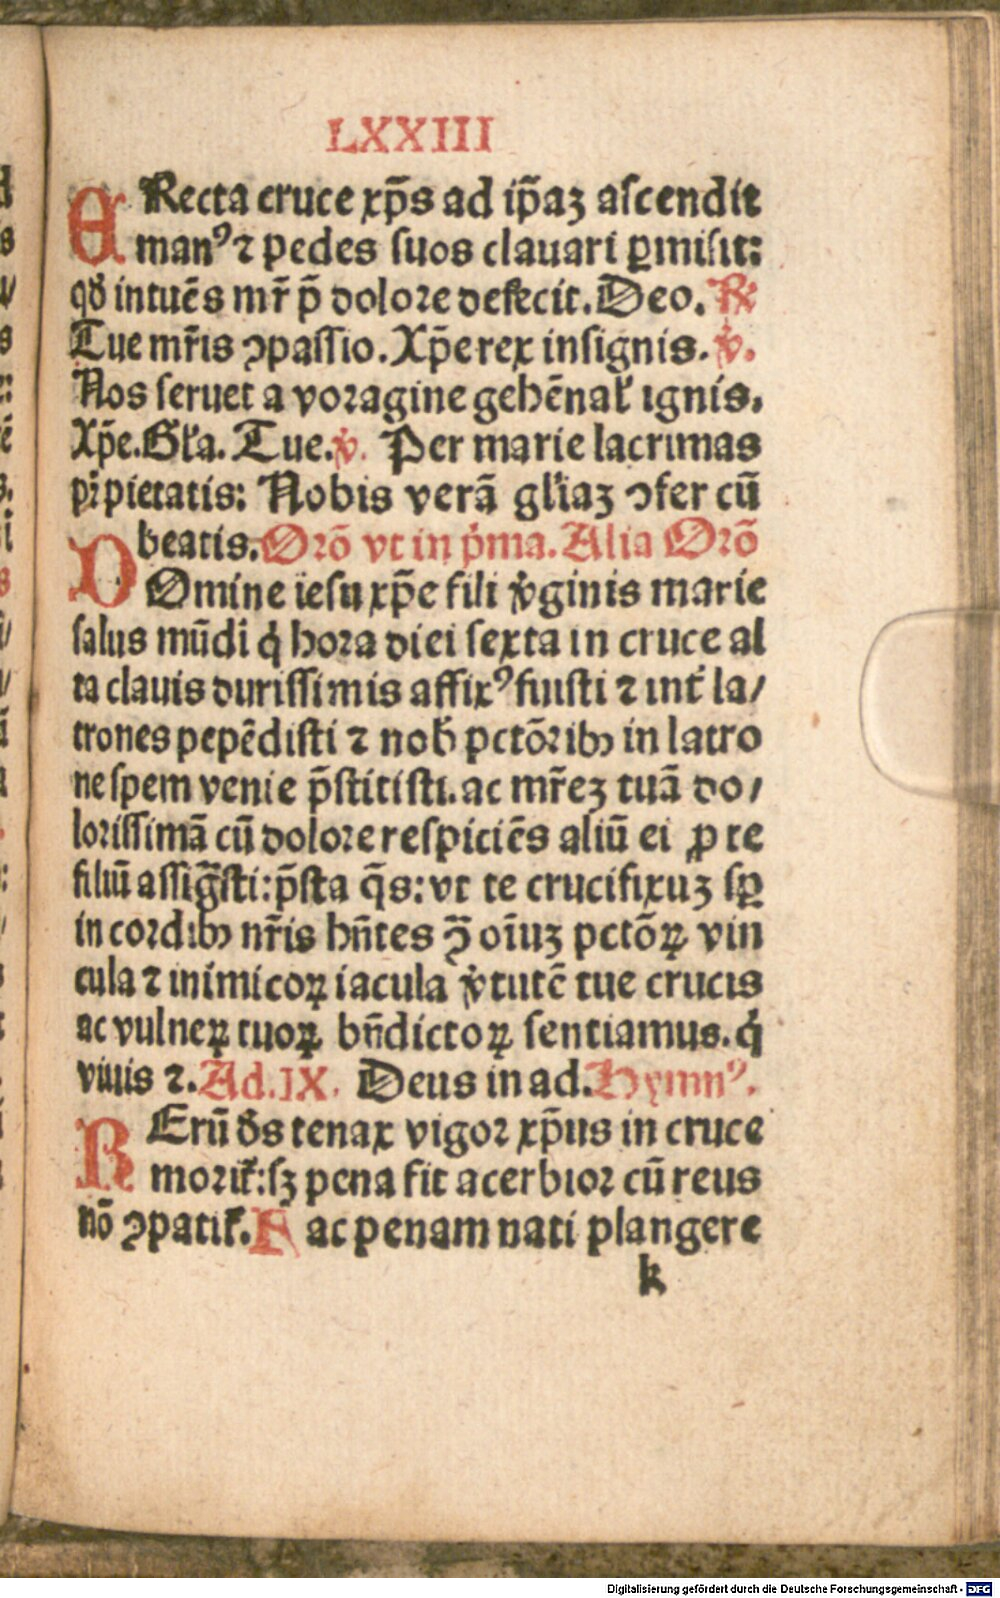 LXXIII
ERecta cruce xp̄s ad ip̄aꝫ aſcendit
manꝰ ⁊ pedes ſuos clauari ꝑmiſit:
qđ intuēs mr̄ p̄ dolore defecit. Deo. ℟
Tue mr̄is ꝯpaſſio. Xp̄e rex inſignis. ℣.
Nos ſeruet a voragine gehēnal̓ ignis.
Xp̄e. Gl̓a. Tue. ℣. Per marie lacrimas
pr̄ pietatis: Nobis verā gl̓iaꝫ ꝯfer cū
beatis. Orō vt in p̓ma. Alia Orō
DOmine ieſu xp̄e fili v̓ginis marie
ſalus mūdi q̓ hora diei ſexta in cruce al
ta clauis duriſſimis affixꝰ fuiſti ⁊ int̓ la/
trones pepēdiſti ⁊ nob̓ pctōribꝫ in latro
ne ſpem venie p̄ſtitiſti. ac mr̄eꝫ tuā do/
loriſſimā cū dolore reſpiciēs aliū ei ꝓ te
filiū aſſiḡſti: p̄ſta q̄s: vt te crucifixuꝫ ſꝑ
in cordibꝫ nr̄is hn̄tes ꝯ̄ oīuꝫ pctōꝝ vin
cula ⁊ inimicoꝝ iacula v̓tutē tue crucis
ac vulneꝝ tuoꝝ bn̄dictoꝝ ſentiamus. q̓
viuis ⁊. Ad. IX. Deus in ad. Hymnꝰ.
REꝛū đs tenax vigor xp̄us in cruce
morit̓: ſꝫ pena fit acerbior cū reus
nō ꝯpatit̓. Fac penam nati plangere
k
Digitalisierung gefördert durch die Deutsche Forschungsgemeinschaft - DFG